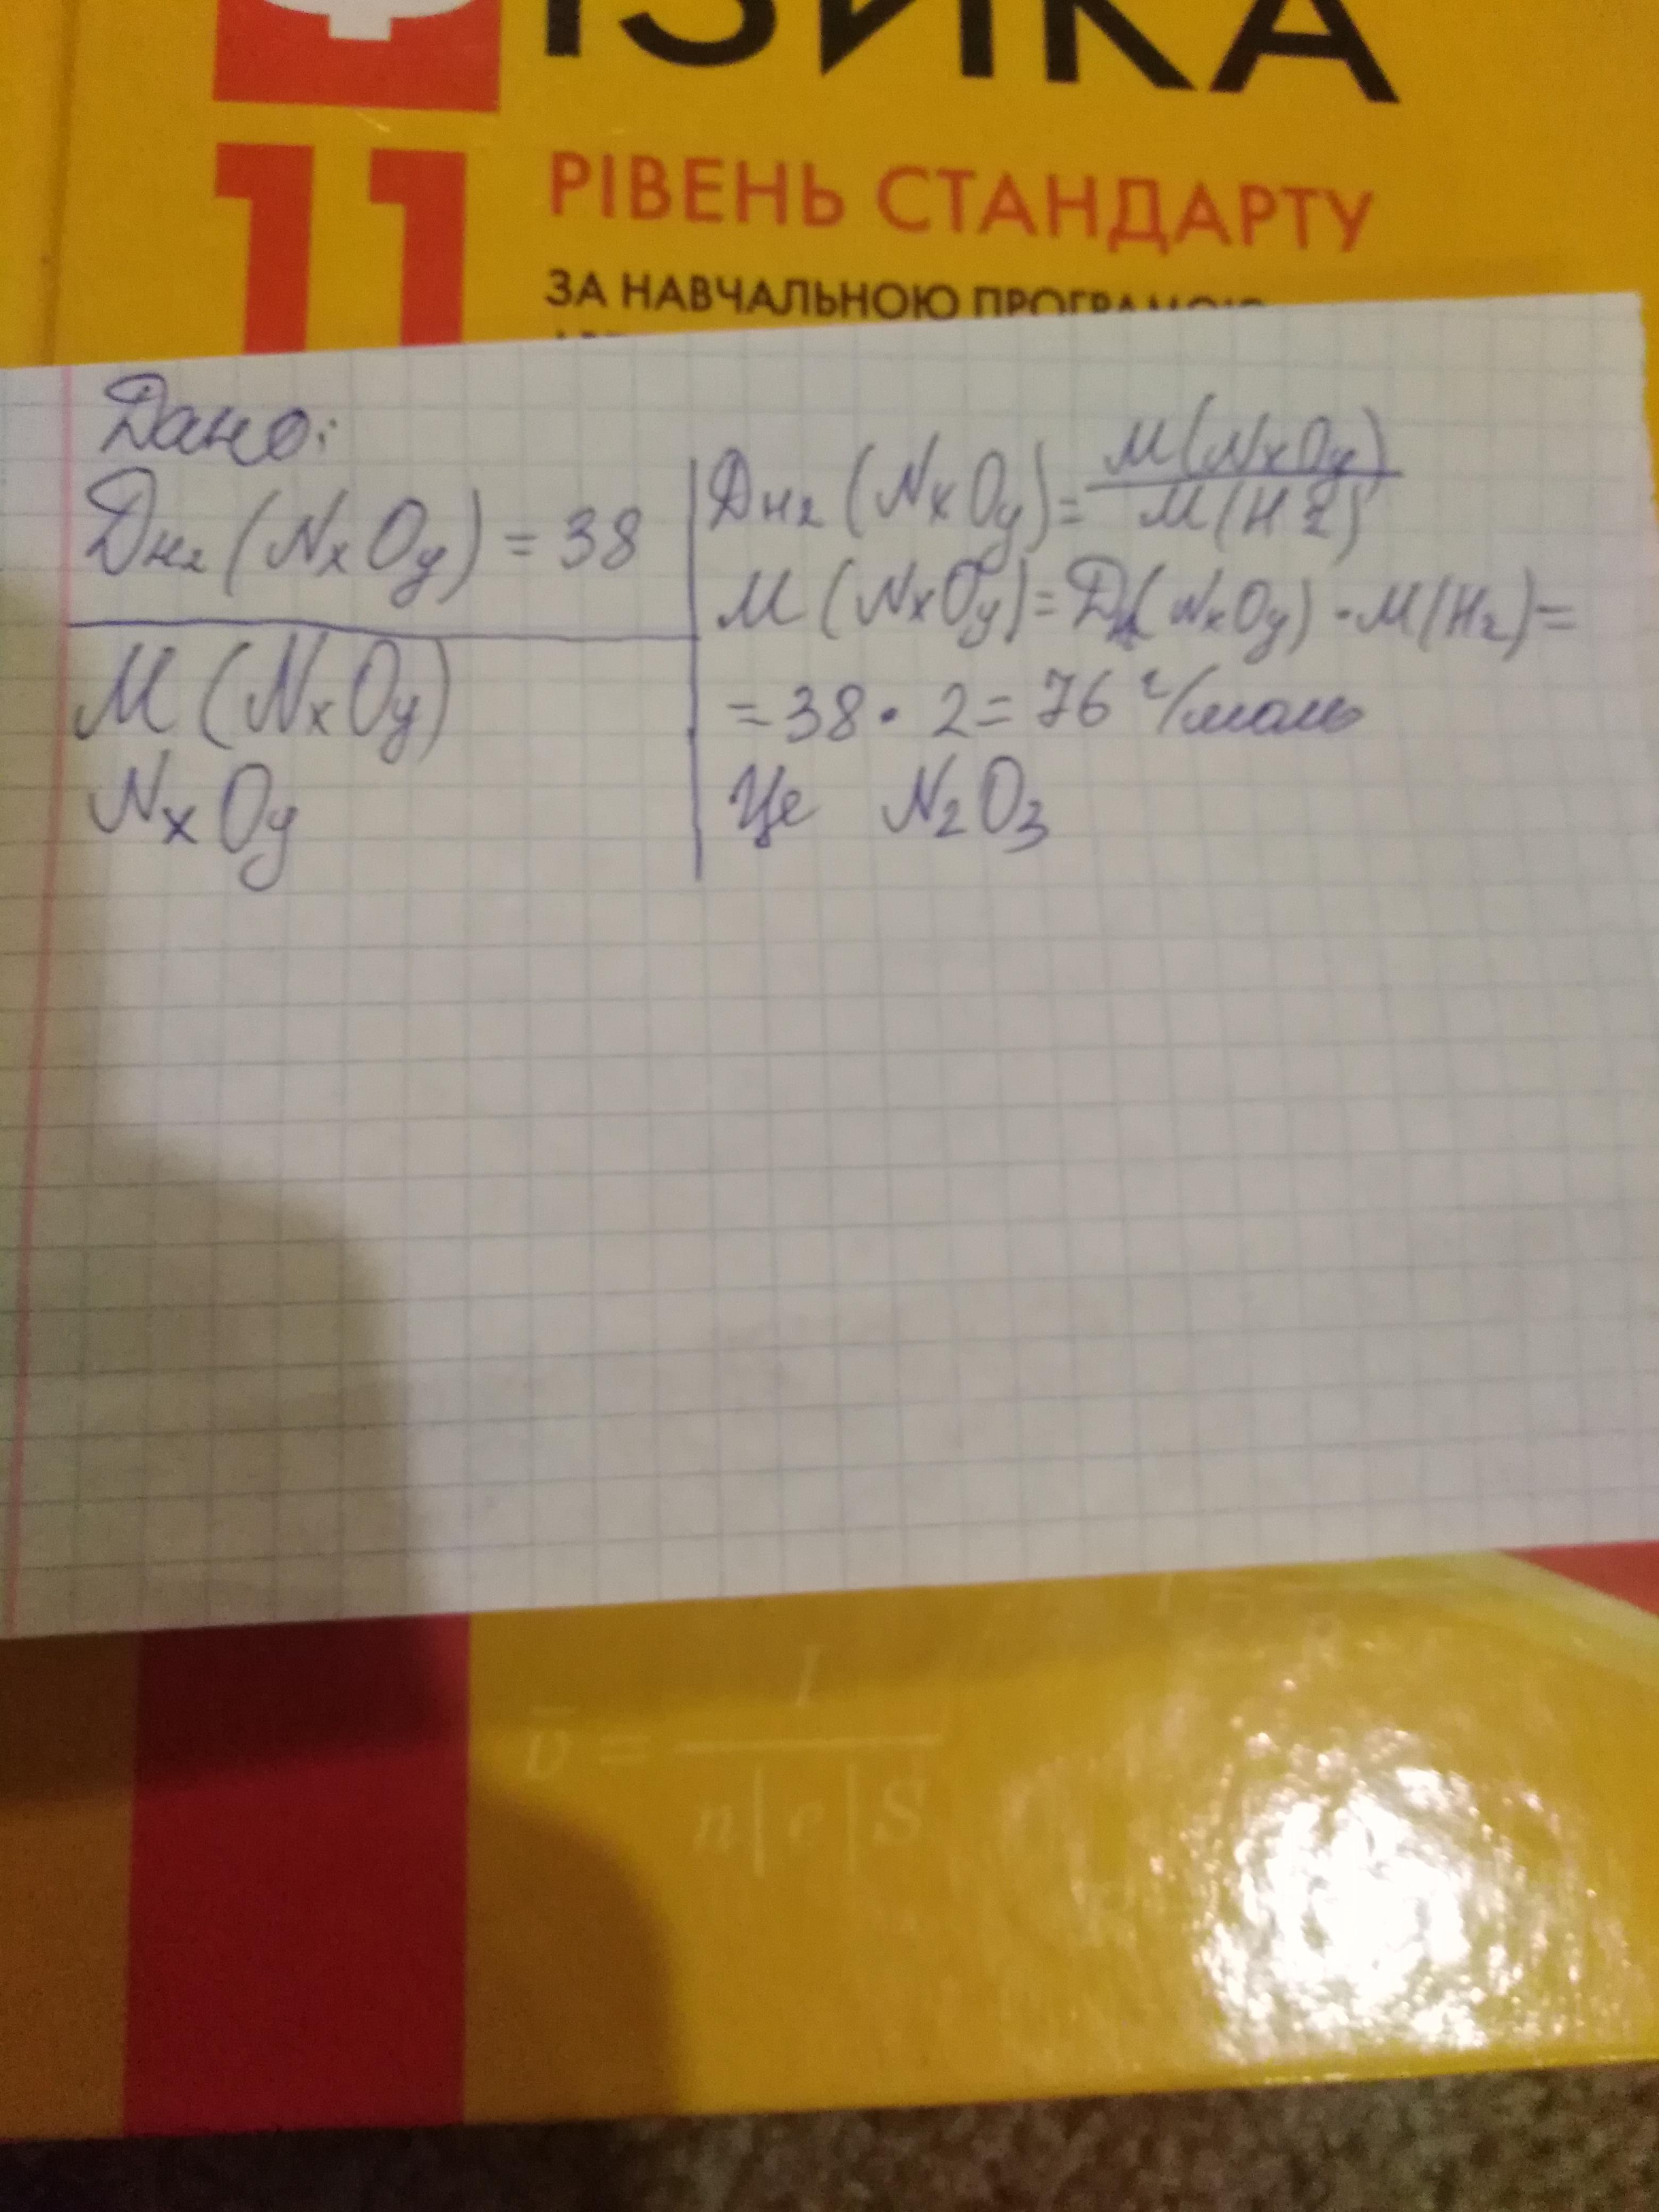 ФІЗИКА
11
РІВЕНЬ СТАНДАРТУ
ЗА НАВЧАЛЬНОЮ ПРОГРАМОЮ
Дано:
Dн₂(NxOy) = 38
M(NxOy)
NxOy
Dн₂(NxOy) = M(NxOy) / M(H₂)
M(NxOy) = Dн(NxOy) · M(H₂) =
= 38 · 2 = 76 г/моль
Це N₂O₃
v̄ = I / n|e|S